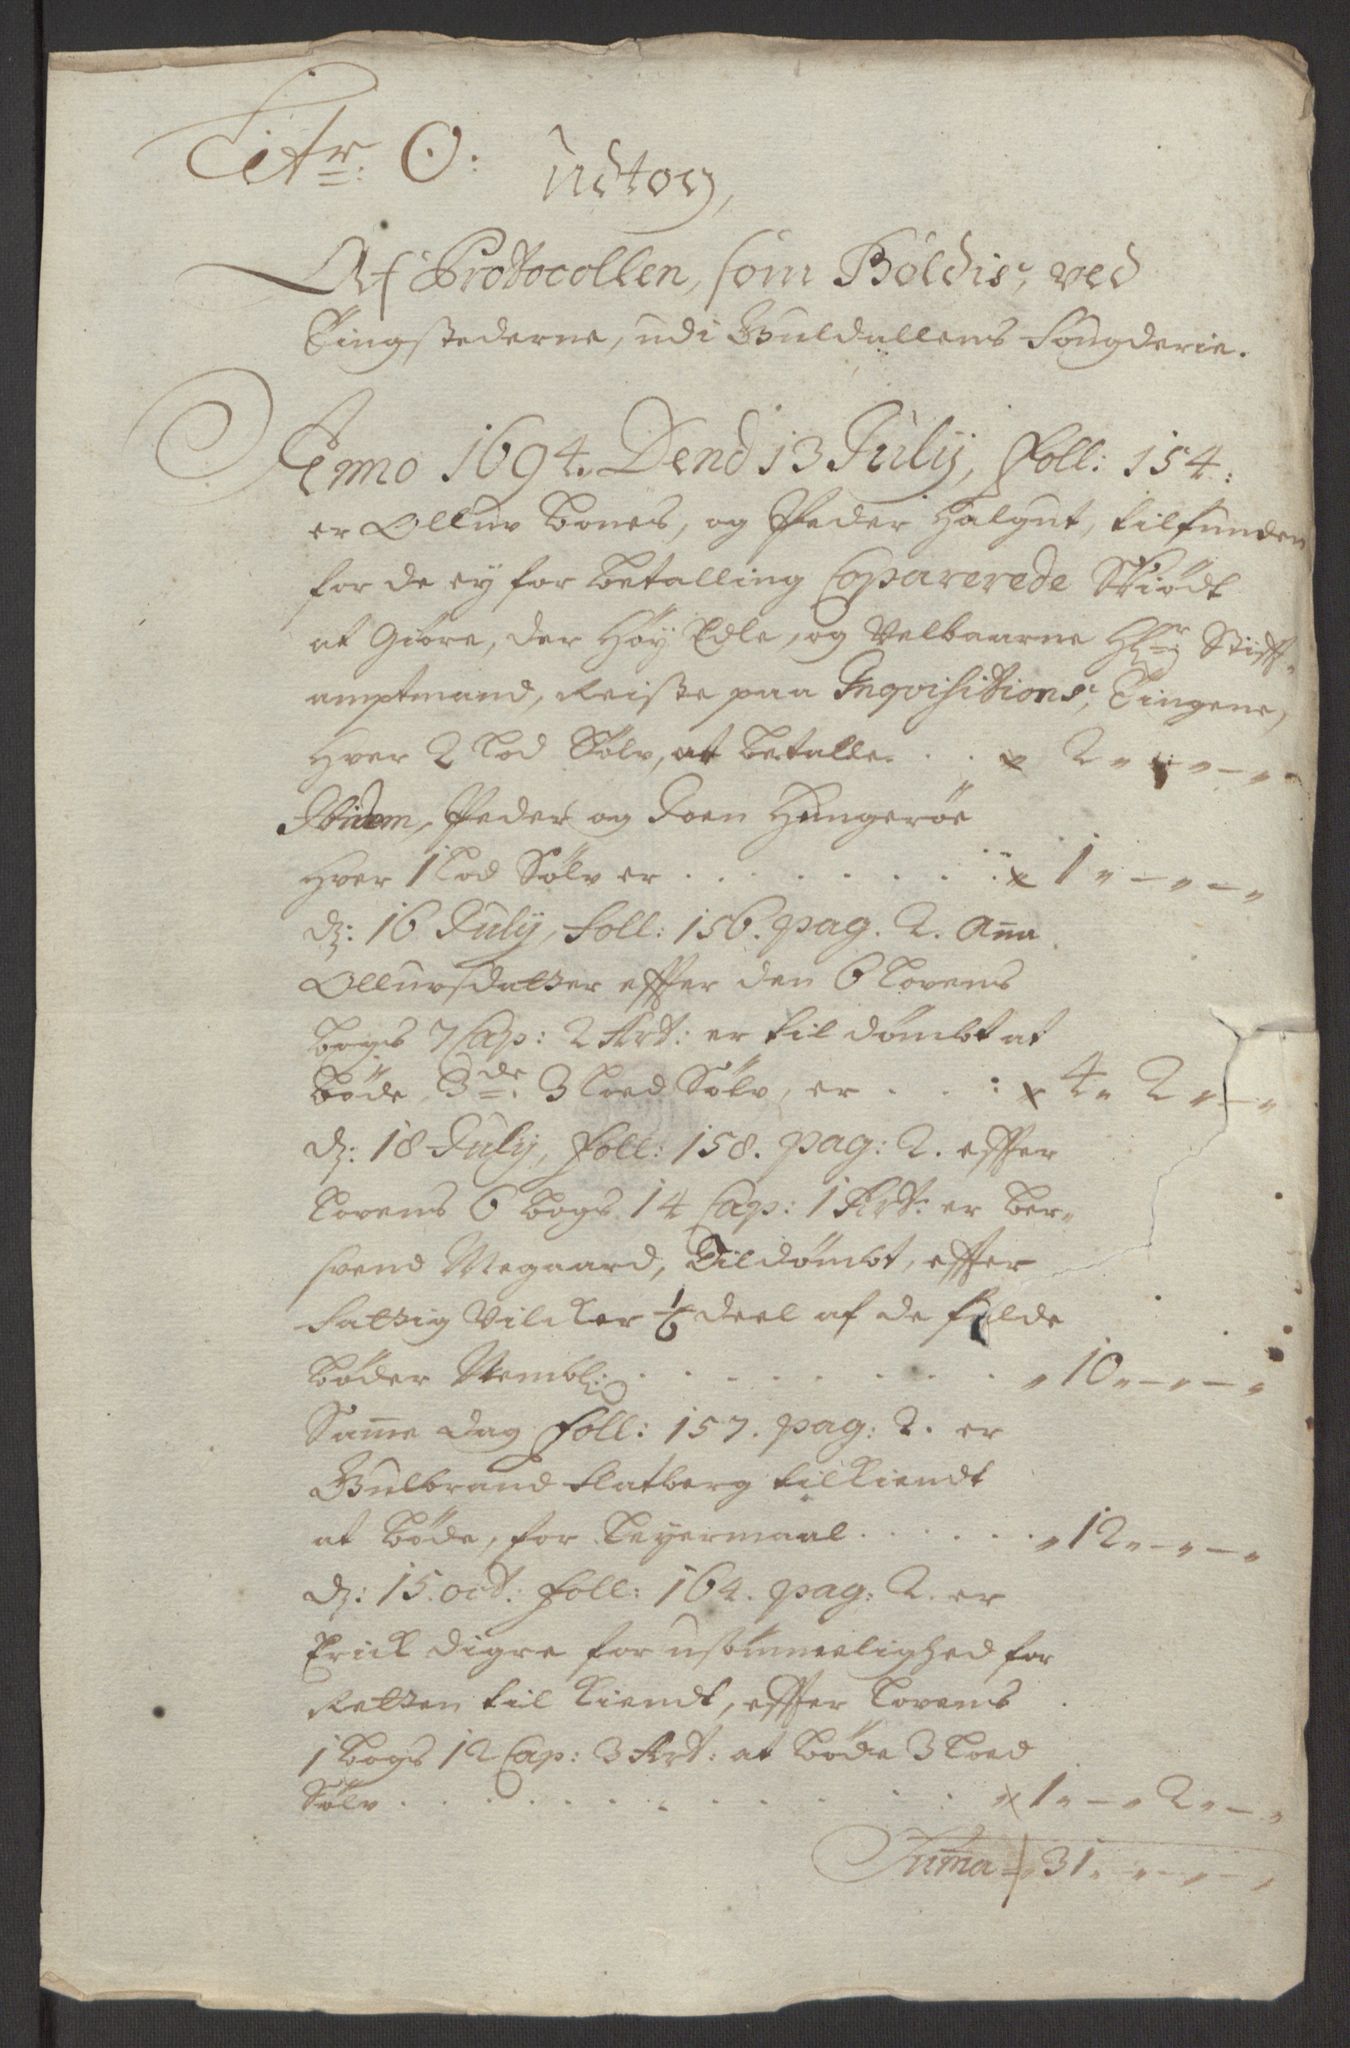 Litr: O:
Udtog,
Af Protocollen, som Holdis, ved
Tingstederne, udi Guldallens Fougderie.
Anno 1694. Dend 13 July, Foll: 154:
er Olluv Bones, og Peder Halgut, tilfunden
for de ey for betalling Coparerede Skiødt
at Giøre, der Høy Edle, og Velbaarne Hr: Stifft-
amptmand, Reiste paa Inqvisitions, Tingene,
hver 2 Lod Sølv, at betalle. . . 2 " - " - "
Ibidem, Peder og Joen Hungerøe
hver 1 Lod Sølv er . . . . . . . 1 " - " - "
d: 16 July, Foll: 156. pag. 2. Anna
Olluvsdatter effter den 6 Lovens
bogs 7 Cap: 2 Art: er til dømbt at
bøde, 3de: 3 Loed Sølv, er . . . 4 " 2 " - "
d: 18 July, Foll: 158. pag: 2. effter
Lovens 6 bogs 14 Cap: 1 Art: er Ber-
svend Megaard, Tildømbt, effter
fattig Vilcker 1/6 deel af de fulde
bøder Nembl: . . . . . . . " 10 " - " - "
Samme Dag Foll: 157. pag: 2. er
Gulbrand Flatberg tilkiendt
at bøde, for Leyermaal . . . . . " 12 " - " - "
d: 15. oct: Foll: 164. pag: 2. er
Erick Digre for usømmelighed for
Retten til kiendt, effter Lovens
1 bogs 12 Cap: 3 Art: at bøde 3 Loed
Sølv . . . . . . . . . . 1 " - " 2 " - "
Suma " 31 " - " - "